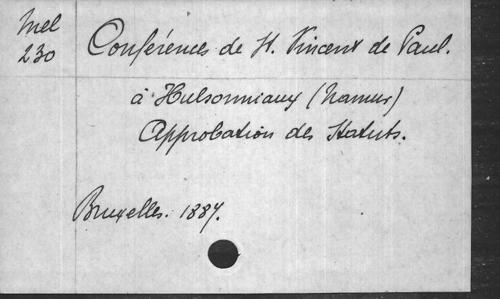 Mel
230
Conférences de St. Vincent de Paul.
à Hulsonniaux (Namur)
Approbation des Statuts.
Bruxelles. 1887.